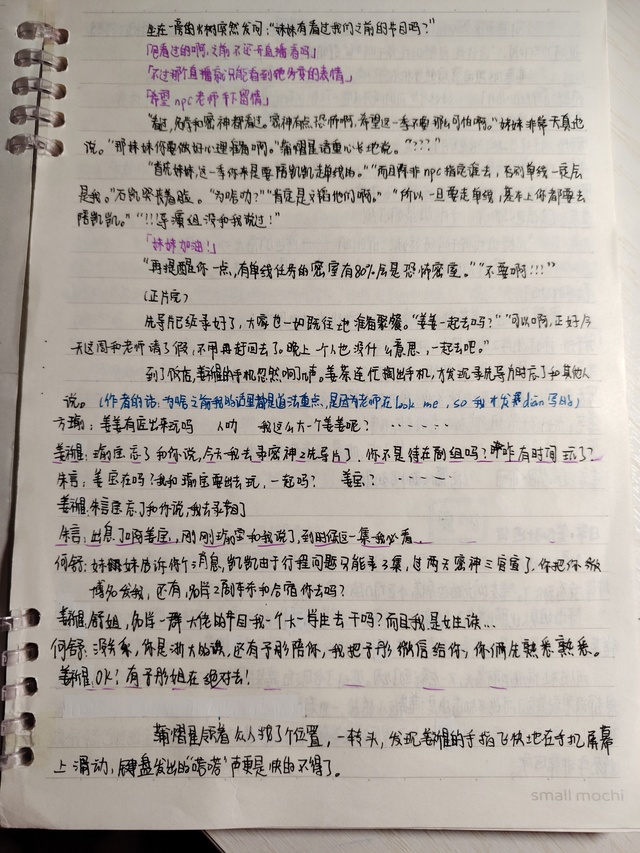 坐在一旁的火树突然发问:“妹妹有看过我们之前的节目吗?”
「看过的啊,之前不还开直播看吗」
「不过那个直播就只能看到她旁旁的表情」
「希望npc老师手下留情」
“看过,名侦和密神都看过。密神有点恐怖啊,希望这一季不要那么可怕啊。”妹妹非常天真地
说。“那妹妹你要做好心理准备啊。”蒲熠星语重心长地说。“???”
“首先妹妹,这一季你来是要陪凯凯走单线的。”“而且除非npc指定谁去,否则单线一定
是我。”石凯哭丧着脸。“为啥呐?”“肯定是文韬他们啊。”“所以一旦要走单线,基本上你都要去
陪凯凯。”“!!!导演组没和我说过!”
「妹妹加油!」
“再提醒你一点,有单线任务的密室有80%层是恐怖密室。”“不要啊!!!”
(正片完)
先导片已经录好了,大家也一如既往地准备聚餐。“姜姜一起去吗?”“可以啊,正好今
天这周和老师请了假,不用再赶回去了。晚上一个人也没什么意思,一起去吧。”
到了饭店,姜禤的手机忽然响了几声。姜茶连忙掏出手机,才发现事先导片时忘了和其他人
说。(作者的话:为啥之前我的话里都是重点,是因为老师在look me,so我才发癫dian写的)
方瑜:姜姜有臣出来玩吗 人呐 我这么大一个姜姜呢? ······
姜禤:瑜宝忘了和你说,今天我去录密神之先导片了。你不是待在剧组吗?昨有时间玩了?
朱言:姜宝在吗?我和瑜宝要出去玩,一起吗? 姜宝? ······
姜禤:朱言宝忘了和你说,我去录节目
朱言:出息了呀姜宝,刚刚瑜宝和我说了,到时候这一集我必看。
何舒:妹妹,妹告诉你个消息,凯凯由于行程问题只能录3集,过两天密神三官宣了,你把你微
博名发我,还有,名侦之剧本杀和合宿你去吗?
姜禤:舒姐,名侦一群大佬的节目我一个大一学生去干吗?而且我是女生诶...
何舒:没关系,你是浙大的诶,还有子彤陪你,我把子彤微信给你,你俩先熟悉熟悉。
姜禤:OK!有子彤姐在绝对去!
蒲熠星领着众人找了个位置,一转头,发现姜禤的手指飞快地在手机屏幕
上滑动,键盘发出的“嗒嗒”声更是快的不得了。
small mochi